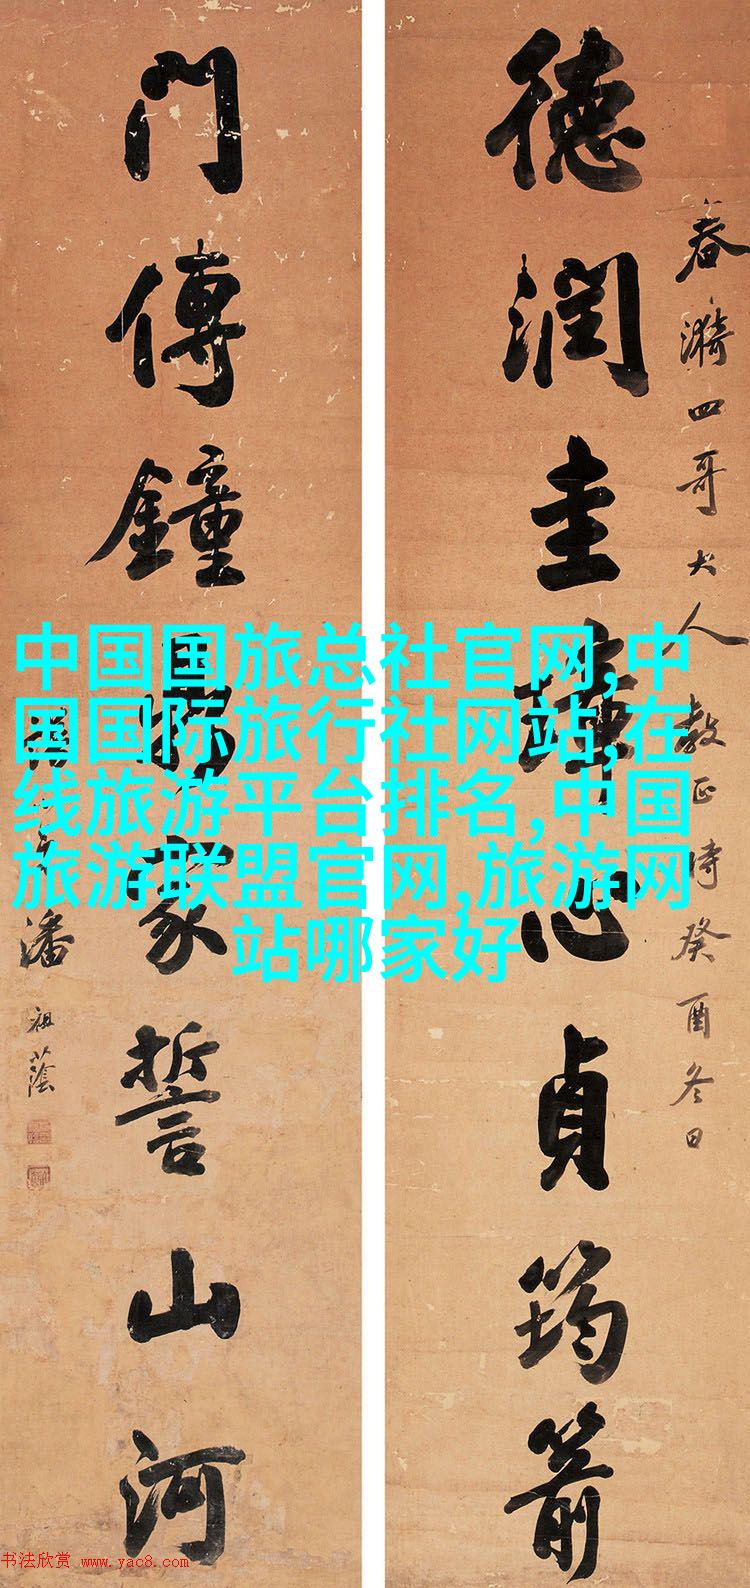 春漪四哥大人教正時癸酉冬日
德潤圭璋心貞筠箭
門傳鐘鼎家誓山河
潘祖蔭
中国国旅总社官网,中
国国际旅行社网站,在
线旅游平台排名,中国
旅游联盟官网,旅游网
站哪家好
书法欣赏 www.yac8.com